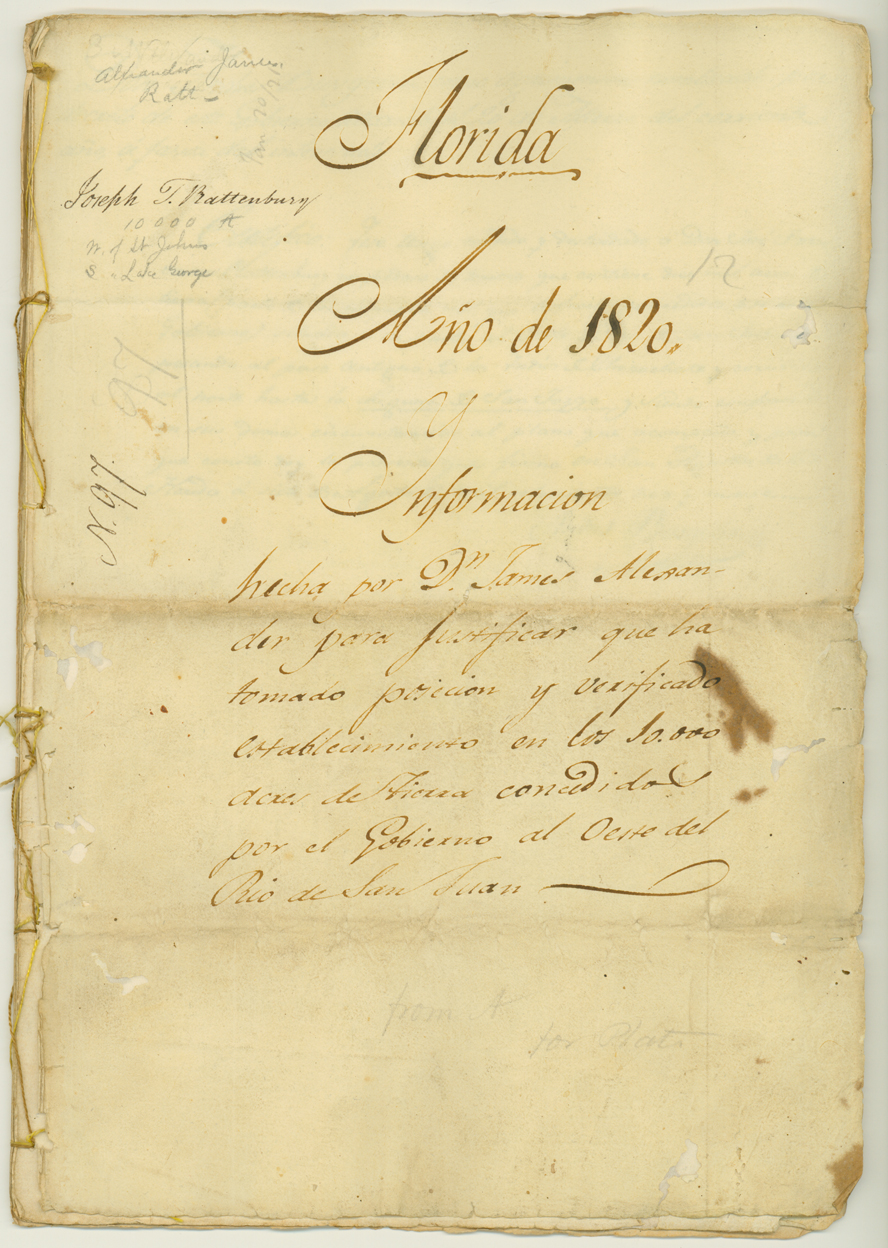 Alexander James
Ratt
Jan 20/21
Joseph T. Rattenbury
10000 A
W. of St Johns
S. " Lake George
12
97
N. 97
Florida
Año de 1820.
Y
Informacion
hecha por Dn. James Alexan-
der para justificar que ha
tomado posicion y verificado
establecimiento en los 10.000
acres de tierra concedidos
por el Gobierno al Oeste del
Rio de San Juan
from A
for